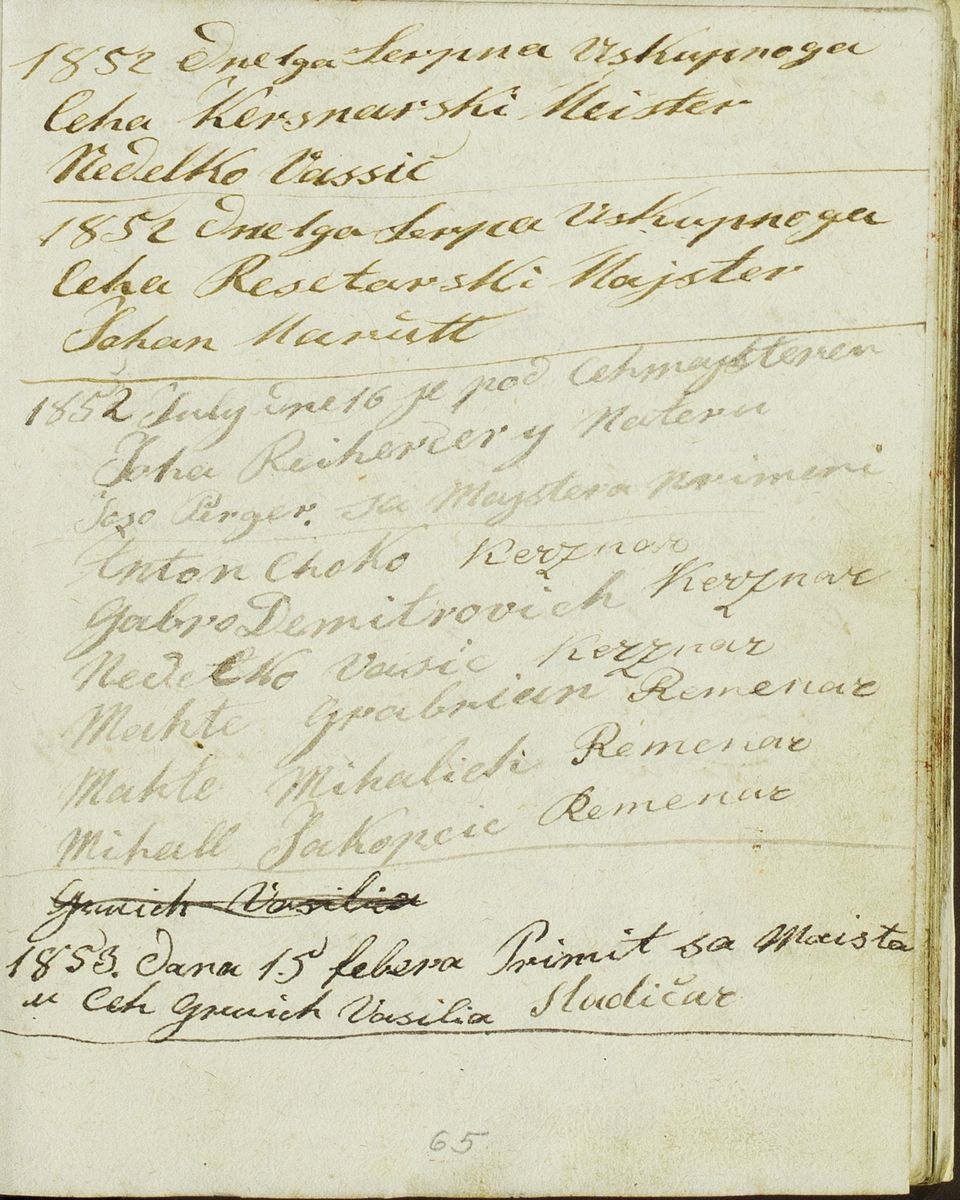 1852 dne 1ga Serpna Uskupnoga
Ceha Kersnarski Meister
Nedelko Vassić
1852 dne 1ga Serpa Uskupnoga
Ceha Resetarski Majster
Johan Marutt
1852 July dne 16 je pod Cehmajsteren
Joha Reiherder y Nateru
Joso Perger. sa Majstera primeni
Anton Choko Kerznar
Gabro Demitrovich Kerznar
Nedelko Vasic Kerznar
Mahte Grabrian Remenar
Mahte Mihalich Remenar
Mihall Jakopcic Remenar
Gruich Vasilia
1853. dana 15 febera Primit sa Maista
u Ceh Gruich Vasilia Sladičar
65